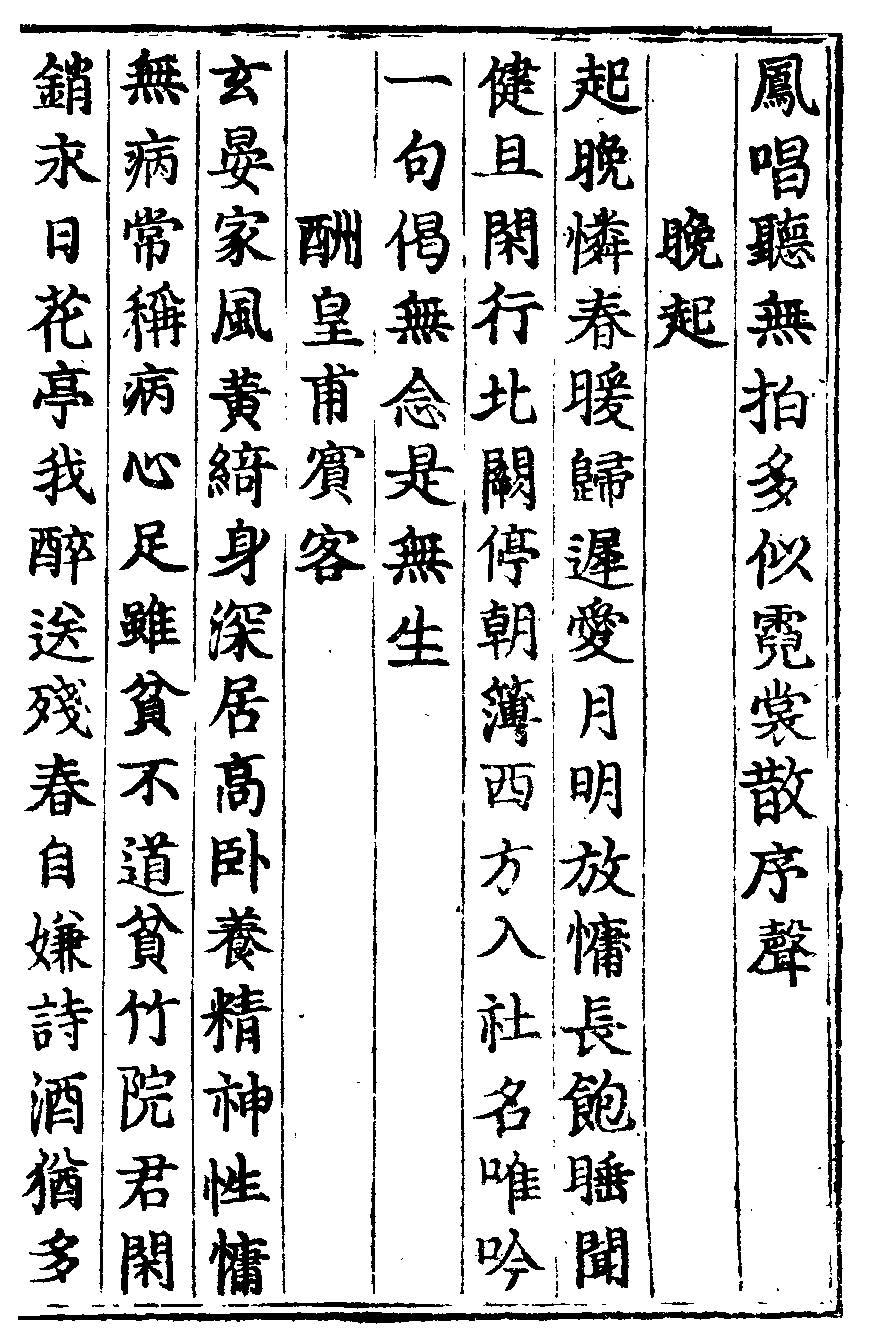 鳳唱聽無拍多似霓裳散序聲
晚起
起晚憐春暖歸遲愛月明放慵長飽睡聞
健且閑行北闕停朝薄西方入社名唯吟
一句偈無念是無生
酬皇甫賓客
玄晏家風黃綺身深居高臥養精神性慵
無病常稱病心足雖貧不道貧竹院君閑
銷永日花亭我醉送殘春自嫌詩酒猶多